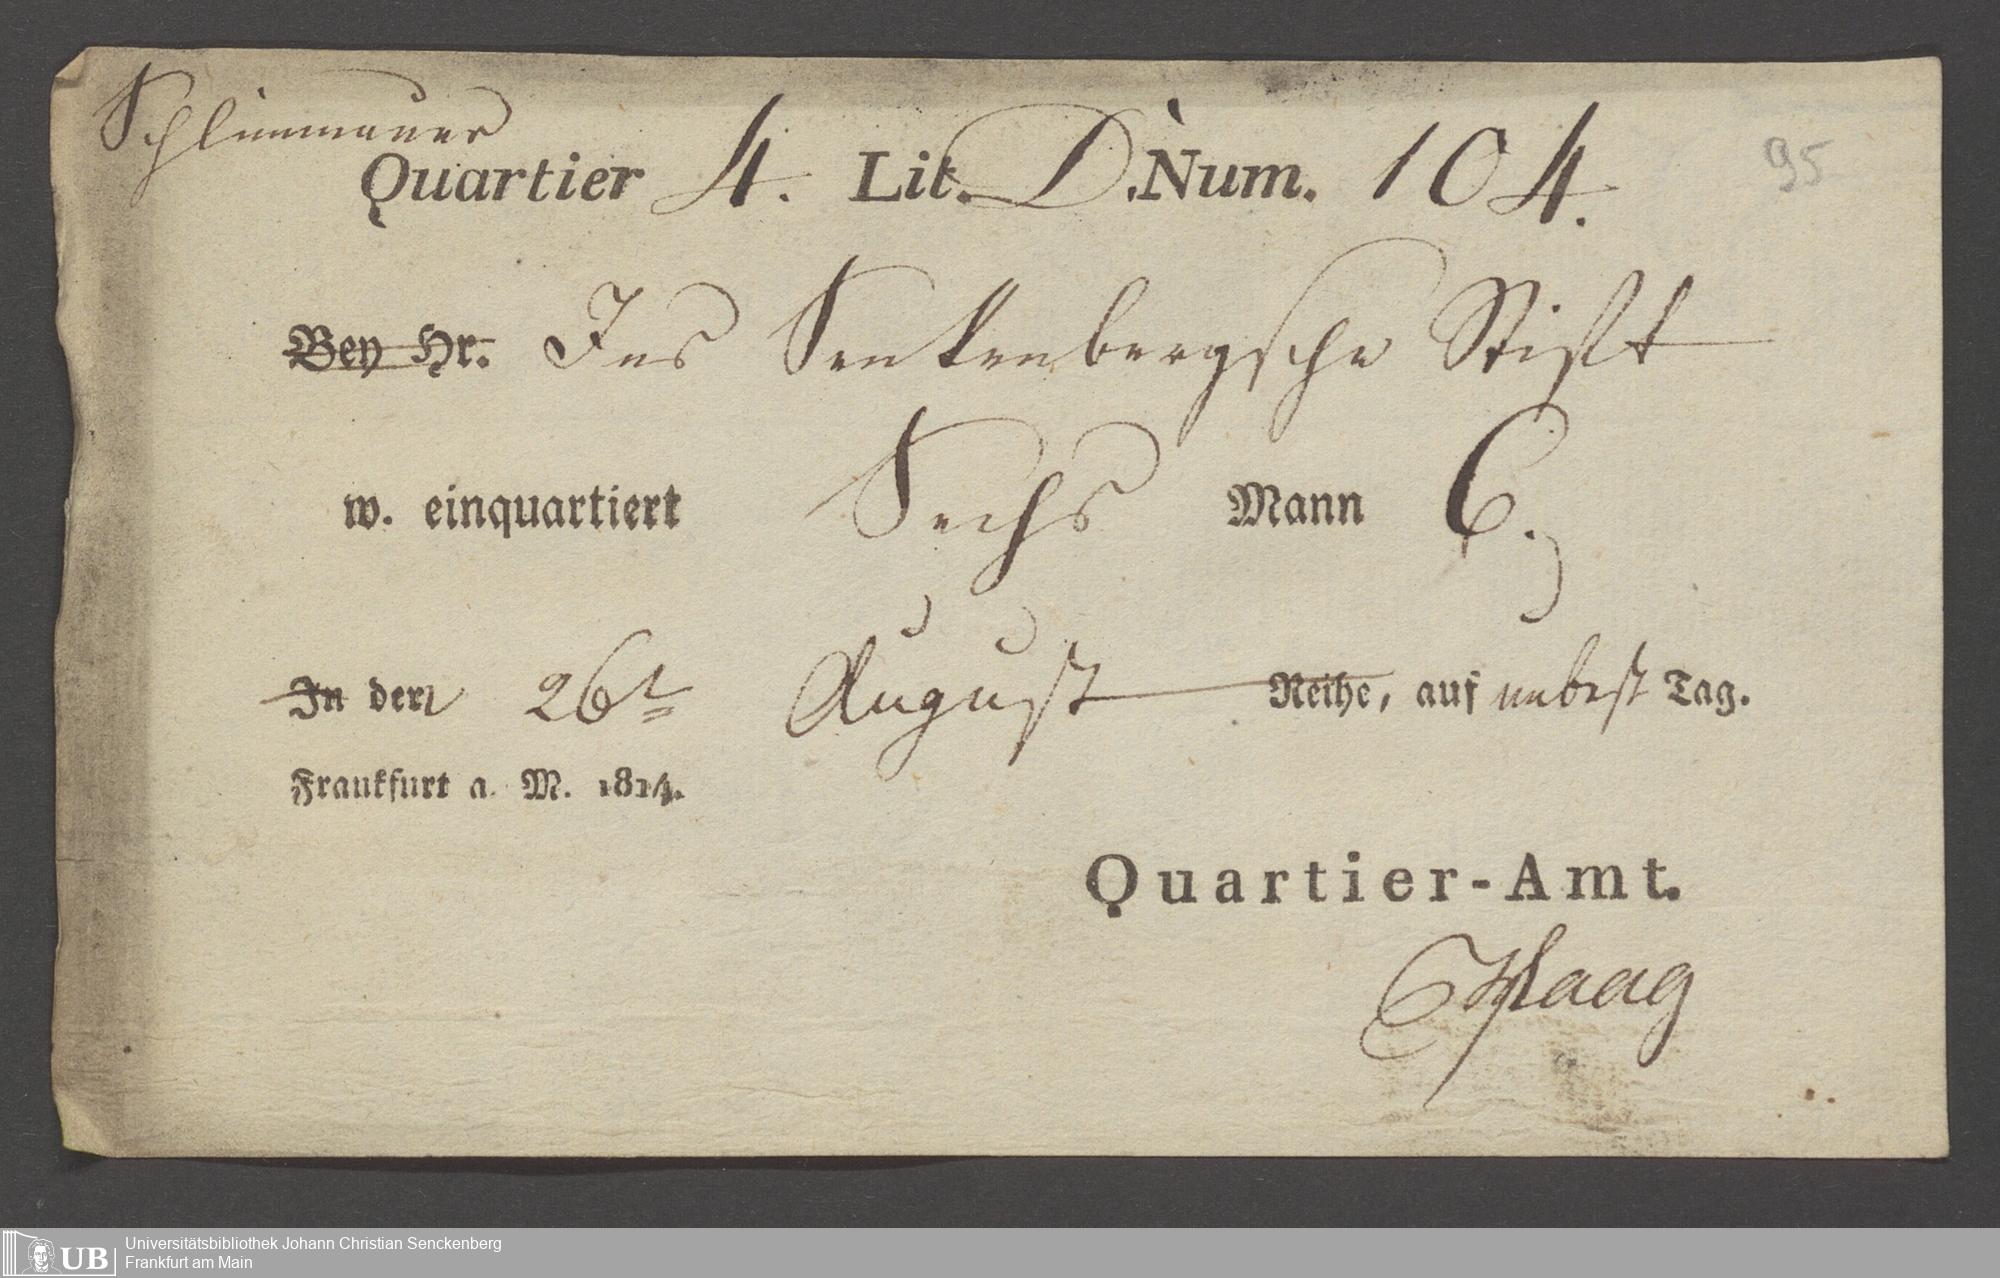 Schlimmauer
Quartier 4. Lit. D. Num. 104. 95
Bey Hr. Das Senkenbergsche Stift
w. einquartiert Sechs Mann 6.
In den 26t August Reihe, auf unbest Tag.
Frankfurt a. M. 1814.
Quartier-Amt.
Haag
UB Universitätsbibliothek Johann Christian Senckenberg
Frankfurt am Main